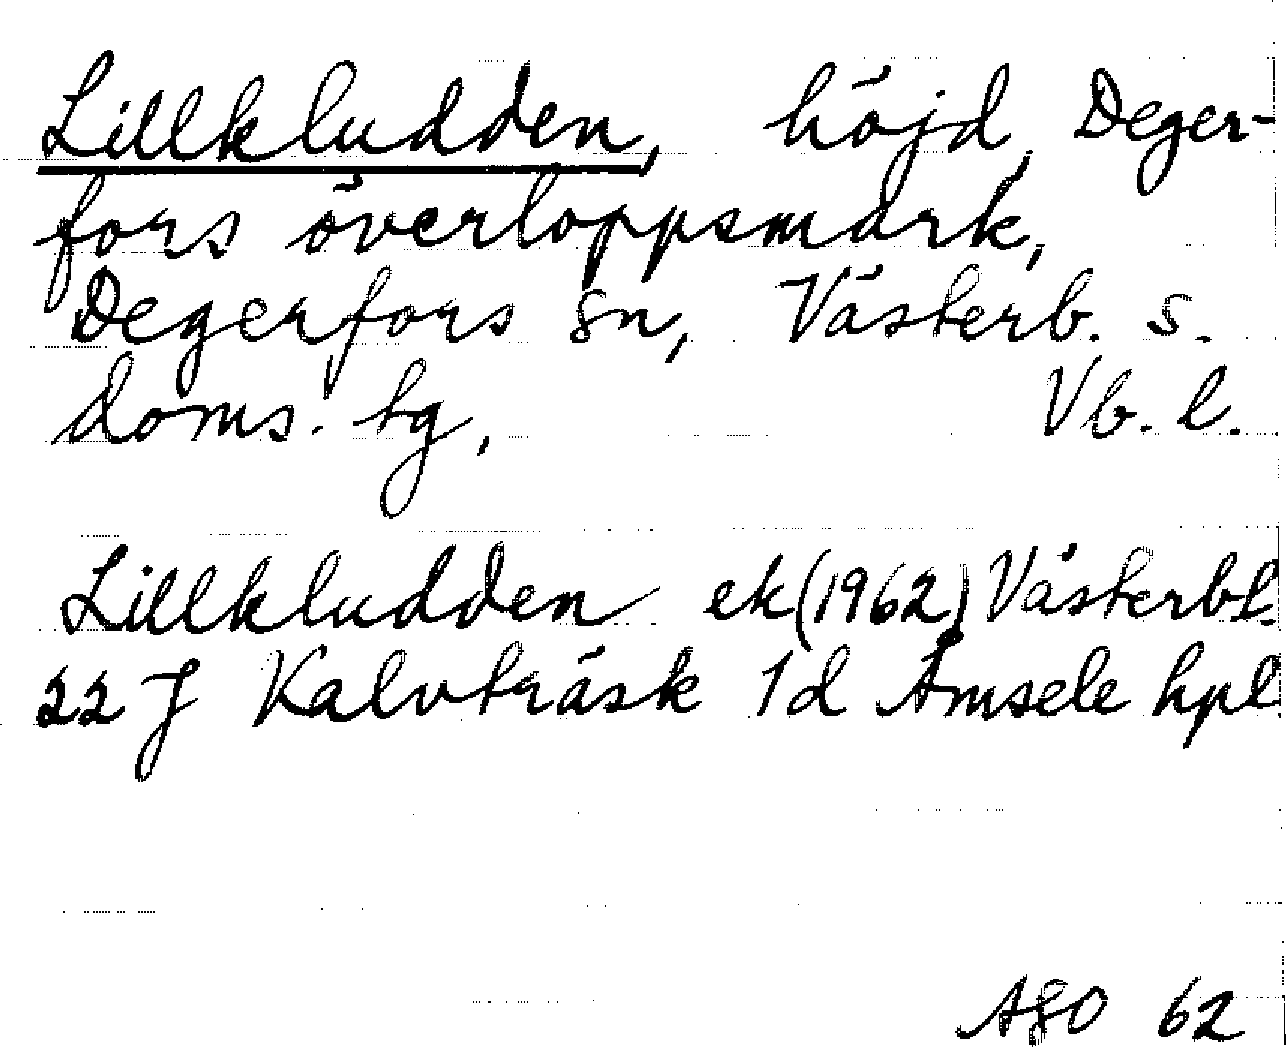 Lillkludden, höjd, Deger-
fors överloppsmark,
Degerfors sn, Västerb. s.
doms. tg, Vb. l.
Lillkludden ek (1962) Västerbt.
22 J Kalvträsk 1d Åmsele hpl
ASO 62